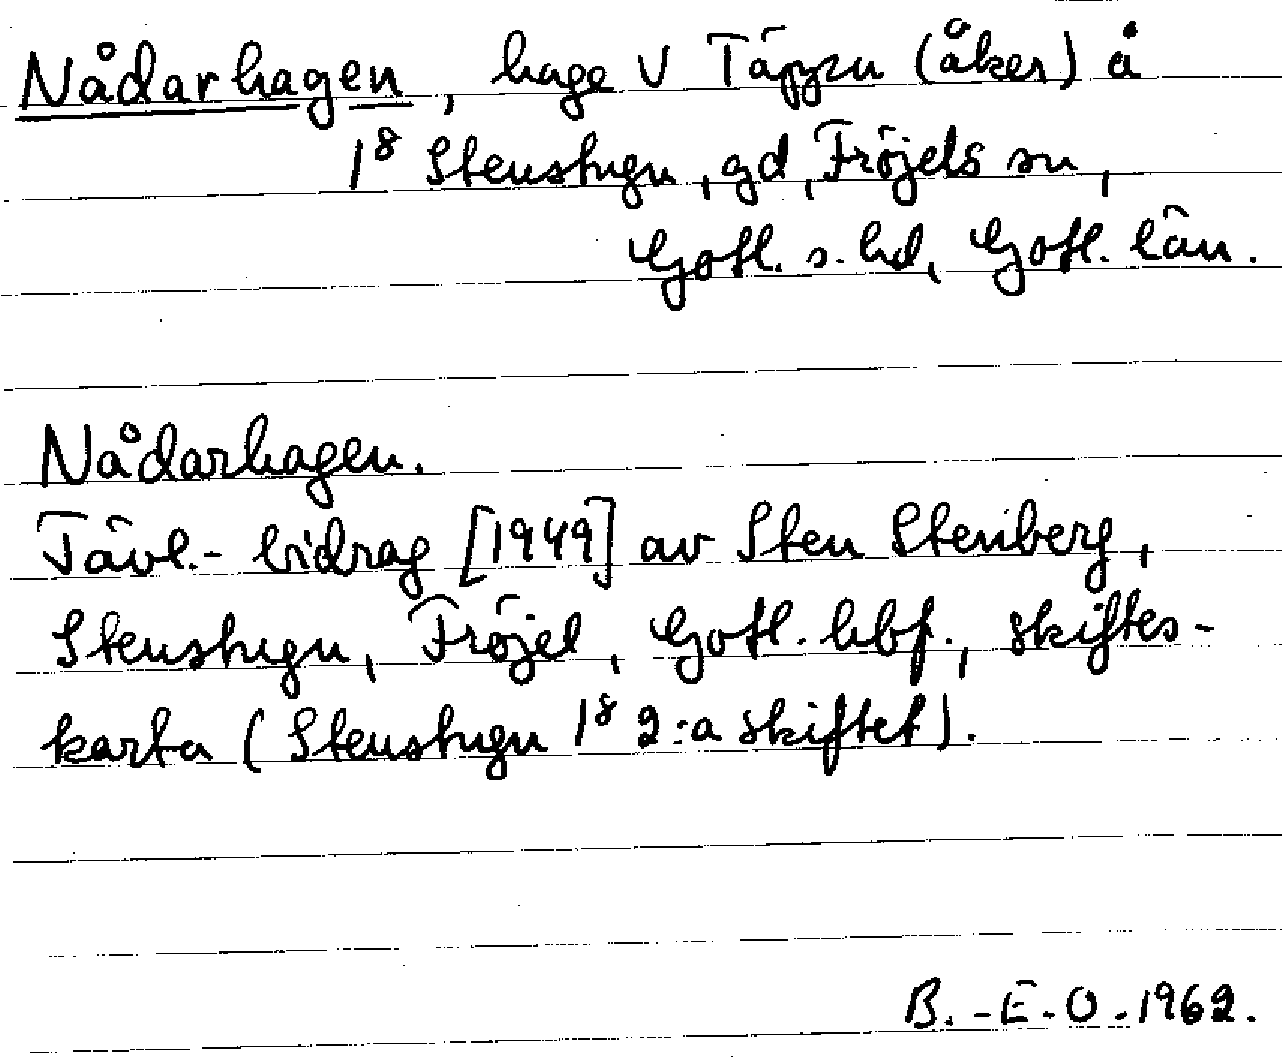 Nådarhagen, hage V Täppu (åker) å
1⁸ Stenstugu, gd, Fröjels sn,
Gotl. s. hd, Gotl. län.
Nådarhagen.
Tävl.- bidrag [1949] av Sten Stenberg,
Stenstugu, Fröjel, Gotl. hbf., skiftes-
karta (Stenstugu 1⁸ 2:a skiftet).
B.-E-O. 1962.